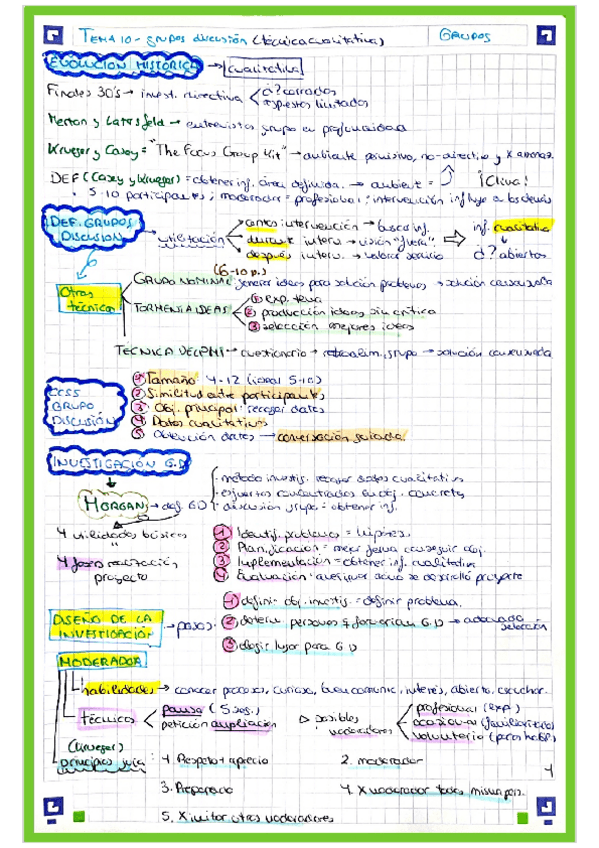 TEMA 10 - grupos discusión (técnica cualitativa) GRUPOS
EVOLUCIÓN HISTÓRICA → cualitativa
Finales 30's → invest. directiva < ¿? cerradas
respuestas limitadas
Merton y Lazarsfeld → entrevistas grupo en profundidad
Krueger y Casey = "The Focus Group Kit" → ambiente permisivo, no-directivo y X amenaz.
DEF (Casey y Krueger) = obtener inf. área definida. → ambient = ¡Clave!
5-10 participantes; moderador = profesional; intervención influye a los demás
DEF. GRUPOS DISCUSIÓN → utilización
antes intervención → busca inf.
durante interv. → visión "fuera"
después interv. → valorar servicio
⇒ inf. cualitativa
↓
¿? abiertas
Otras técnicas
(6-10 p.)
GRUPO NOMINAL: generar ideas para solución problemas → solución consensuada
TORMENTA IDEAS
① exp. tema
② producción ideas sin crítica
③ selección mejores ideas
TÉCNICA DELPHI → cuestionario → retroalim. grupo → solución consensuada
CCSS GRUPO DISCUSIÓN
① Tamaño 4-12 (ideal 5-10)
② Similitud entre participantes
③ Obj. principal: recoger datos
④ Datos cualitativos
⑤ Obtención datos → conversación guiada
INVESTIGACIÓN G.D
MORGAN → def. GD
· método investig. recoger datos cualitativos
· esfuerzos concentrados en obj. concretos
· discusión grupo = obtener inf.
4 utilidades básicas
"
4 fases realización proyecto
① Identif. problemas = hipótesis
② Planificación = mejor forma conseguir obj.
③ Implementación = obtener inf. cualitativa
④ Evaluación = averiguar cómo se desarrolló proyecto
DISEÑO DE LA INVESTIGACIÓN → pasos.
① definir obj. investig. = definir problema.
② determ. personas q formarían G.D → adecuada selección
③ elegir lugar para G.D
MODERADOR
habilidades → conocer procesos, curioso, buen comunic., interés, abierto, escuchar.
técnicas < pausa (5 seg.)
petición ampliación
▷ posibles moderadores
profesional (exp.)
ocasional (familiaritario)
voluntario (para
(Krueger)
principios guía:
1. Respeto + aprecio 2. moderador
3. Preparado 4. X moderador todos mismo pers.
5. X imitar otros moderadores